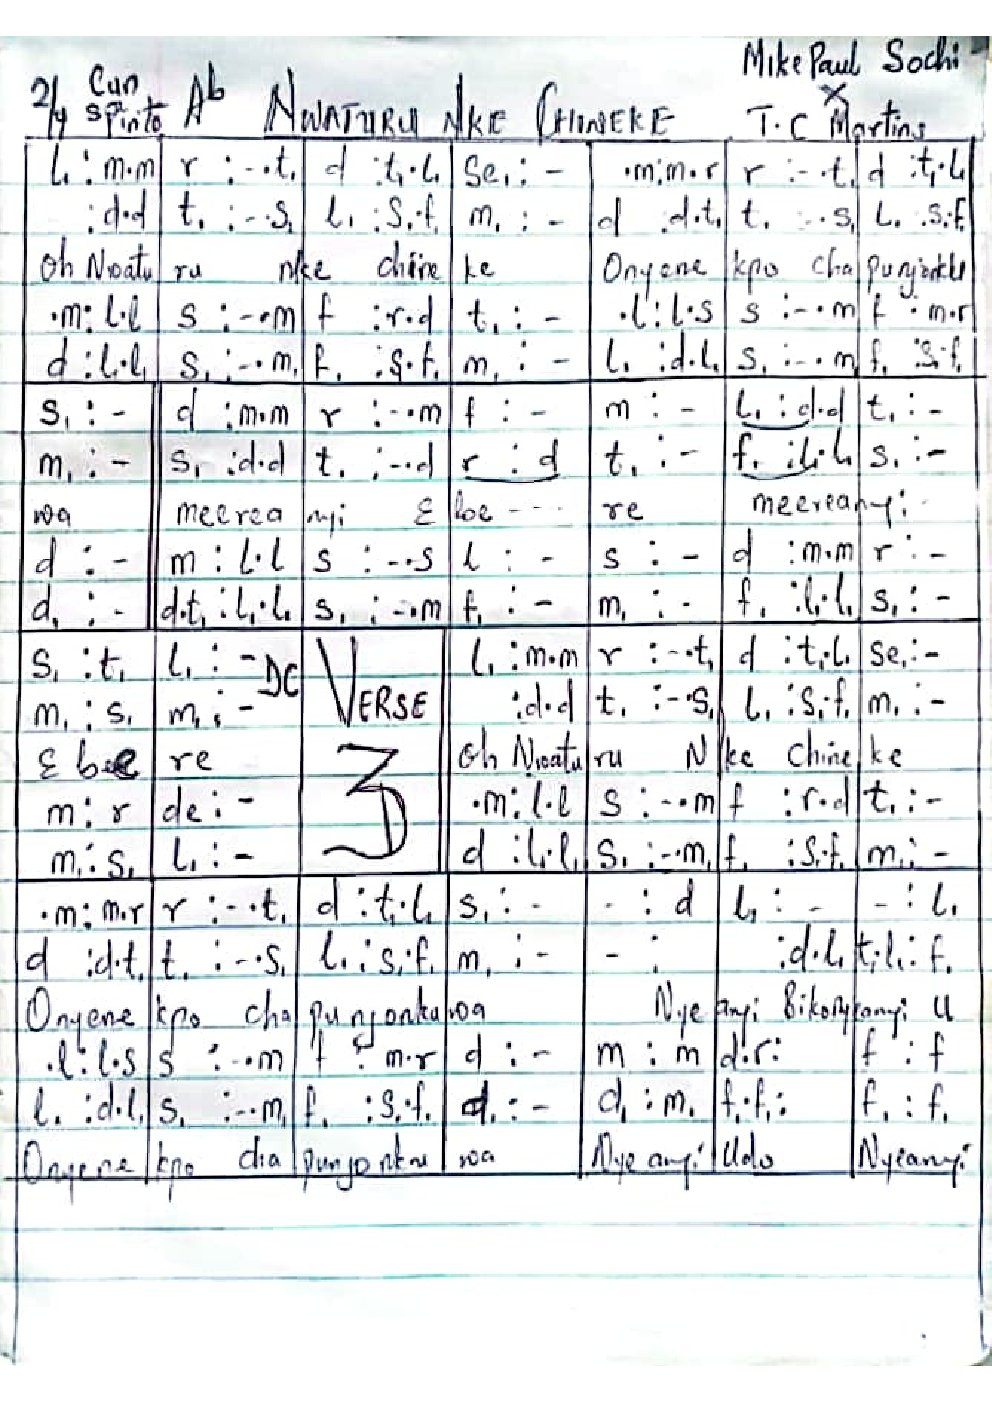 Mike Paul Sochi
2/4 Con Spirito Ab NWATURU NKE CHINEKE x T.C Martins
l, : m.m | r : -.t, | d : t,.l, | se, : - | .m : m.r | r : -.t, | d : t,.l,
: d.d | t, : -.s, | l, : s,.f, | m, : - | d d.t, | t, -.s, | l, s,.f,
Oh Nwatu | ru nke | chine | ke | Onyene | kpo cha | punjonku
.m : l.l | s : -.m | f : r.d | t, : - | .l : l.s | s : -.m | f : m.r
d : l,.l, | s, : -.m, | f, : s,.f, | m, : - | l, : d.l, | s, : -.m | f, : s,.f,
s, : - | d : m.m | r : -.m | f : - | m : - | l, : d.d | t, : -
m, : - | s, : d.d | t, : -.d | r : d | t, : - | f, : l,.l, | s, : -
wa | meerea | nyi ε | be ---- | re | meereanyi :-
d : - | m : l.l | s : -.s | l : - | s : - | d : m.m | r : -
d, : - | d.t, : l,.l, | s, : -.m | f, : - | m, : - | f, : l,.l, | s, : -
s, : t, | l, : - DC | VERSE | l, : m.m | r : -.t, | d : t,.l, | se, : -
m, : s, | m, : - | : d.d | t, : -.s, | l, : s,.f, | m, : -
ε bee | re | 3 | Oh Nwatu | ru N | ke Chine | ke
m : r | de : - | .m : l.l | s : -.m | f : r.d | t, : -
m, : s, | l, : - | d : l,.l, | s, : -.m, | f, : s,.f, | m, : -
.m : m.r | r : -.t, | d : t,.l, | s, : - | - : d | l, : - | - : l,
d : d.t, | t, : -.s, | l, : s,.f, | m, : - | - : | : d.l, | t,.l, : f,
Onyene | kpo cha | punjonku | wa | Nye | anyi Biko | nyeanyi U
.l : l.s | s : -.m | f : m.r | d : - | m : m | d.r : | f : f
l, : d.l, | s, : -.m, | f, : s,.f, | d, : - | d, : m, | f,.f, : | f, : f,
Onyene | kpo cha | punjonku | wa | Nye anyi | Udo | Nyeanyi